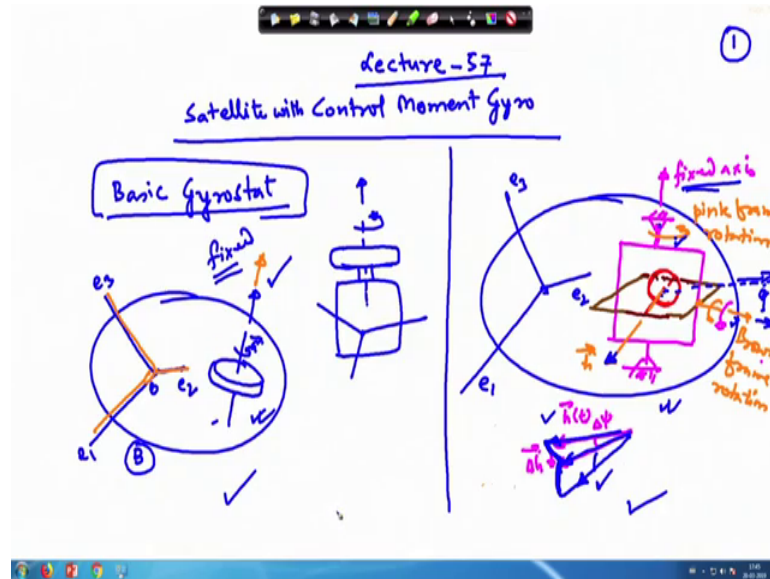 1
Lecture-57
Satellite with Control Moment Gyro
Basic Gyrostat
fixed
e3
e2
e1
B
fixed axis
pink frame
rotation
e3
e2
e1
h
frame
rotation
h(t)
Δψ
Δh